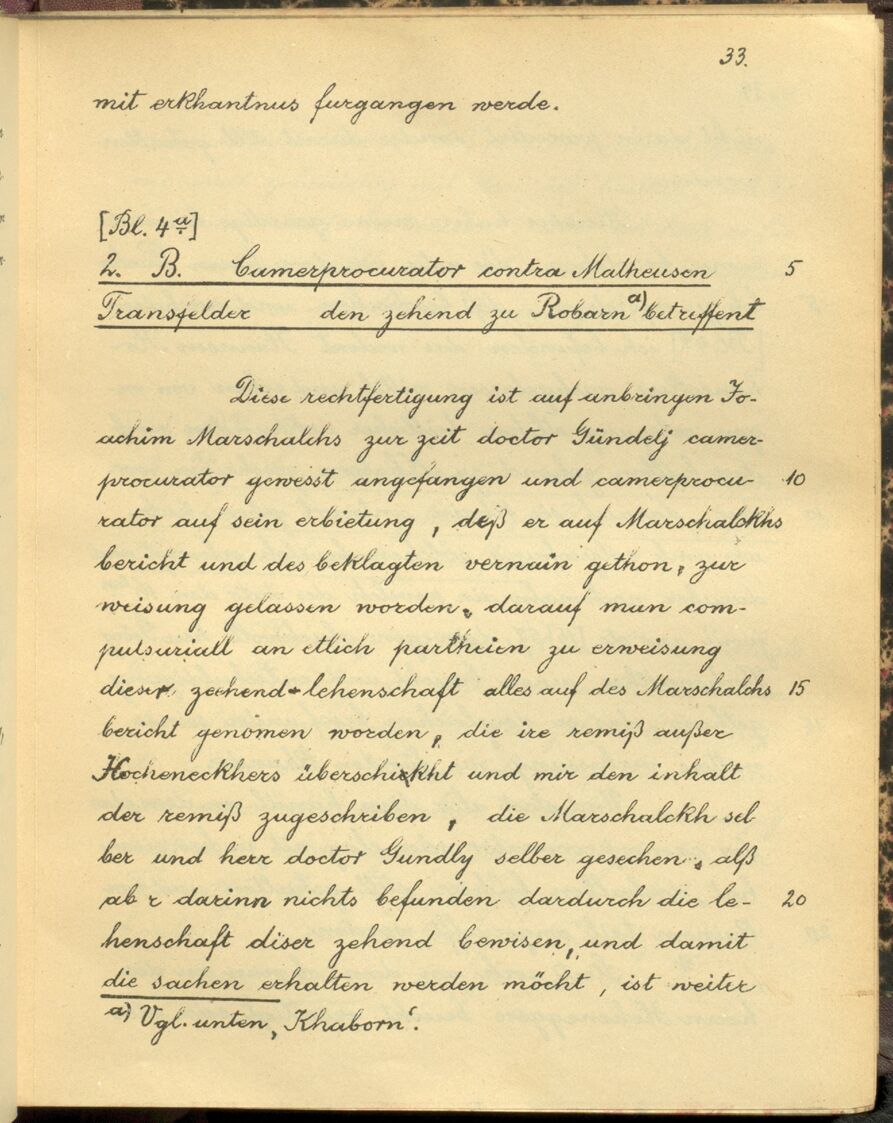 33.
mit erkhantnus furgangen werde.
[Bl. 4a]
2. B. Camerprocurator contra Matheusen 5
Transfelder den zehend zu Robarn a) betreffent
Diese rechtfertigung ist auf anbringen Jo-
achim Marschalchs zur zeit doctor Gündelj camer-
procurator gewesst angefangen und camerprocu- 10
rator auf sein erbietung, deß er auf Marschalckhs
bericht und des beklagten vernain gethon, zur
weisung gelassen worden, darauf man com-
pulsuriall an etlich partheien zu erweisung
dieser zechend-lehenschaft alles auf des Marschalchs 15
bericht genomen worden, die ire remiß außer
Hocheneckhers überschickht und mir den inhalt
der remiß zugeschriben, die Marschalckh sel
ber und herr doctor Gundly selber gesechen, alß
ab r darinn nichts befunden dardurch die le- 20
henschaft diser zehend bewisen, und damit
die sachen erhalten werden möcht, ist weiter
a) Vgl. unten „Khaborn‘.